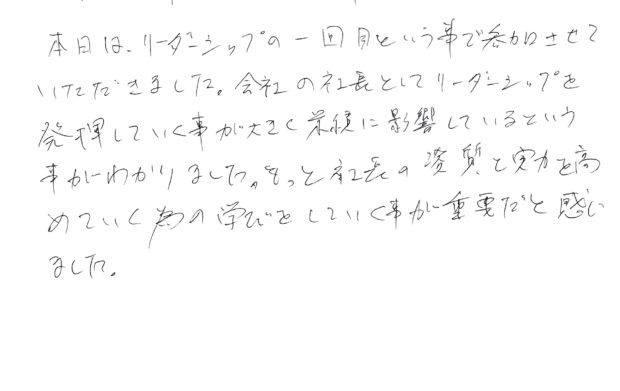 本日は、リーダーシップの一回目という事で参加させて
いただきました。会社の社長としてリーダーシップを
発揮していく事が大きく業績に影響しているという
事がわかりました。もっと社長の資質と実力を高
めていく為の学びをしていく事が重要だと感じ
ました。